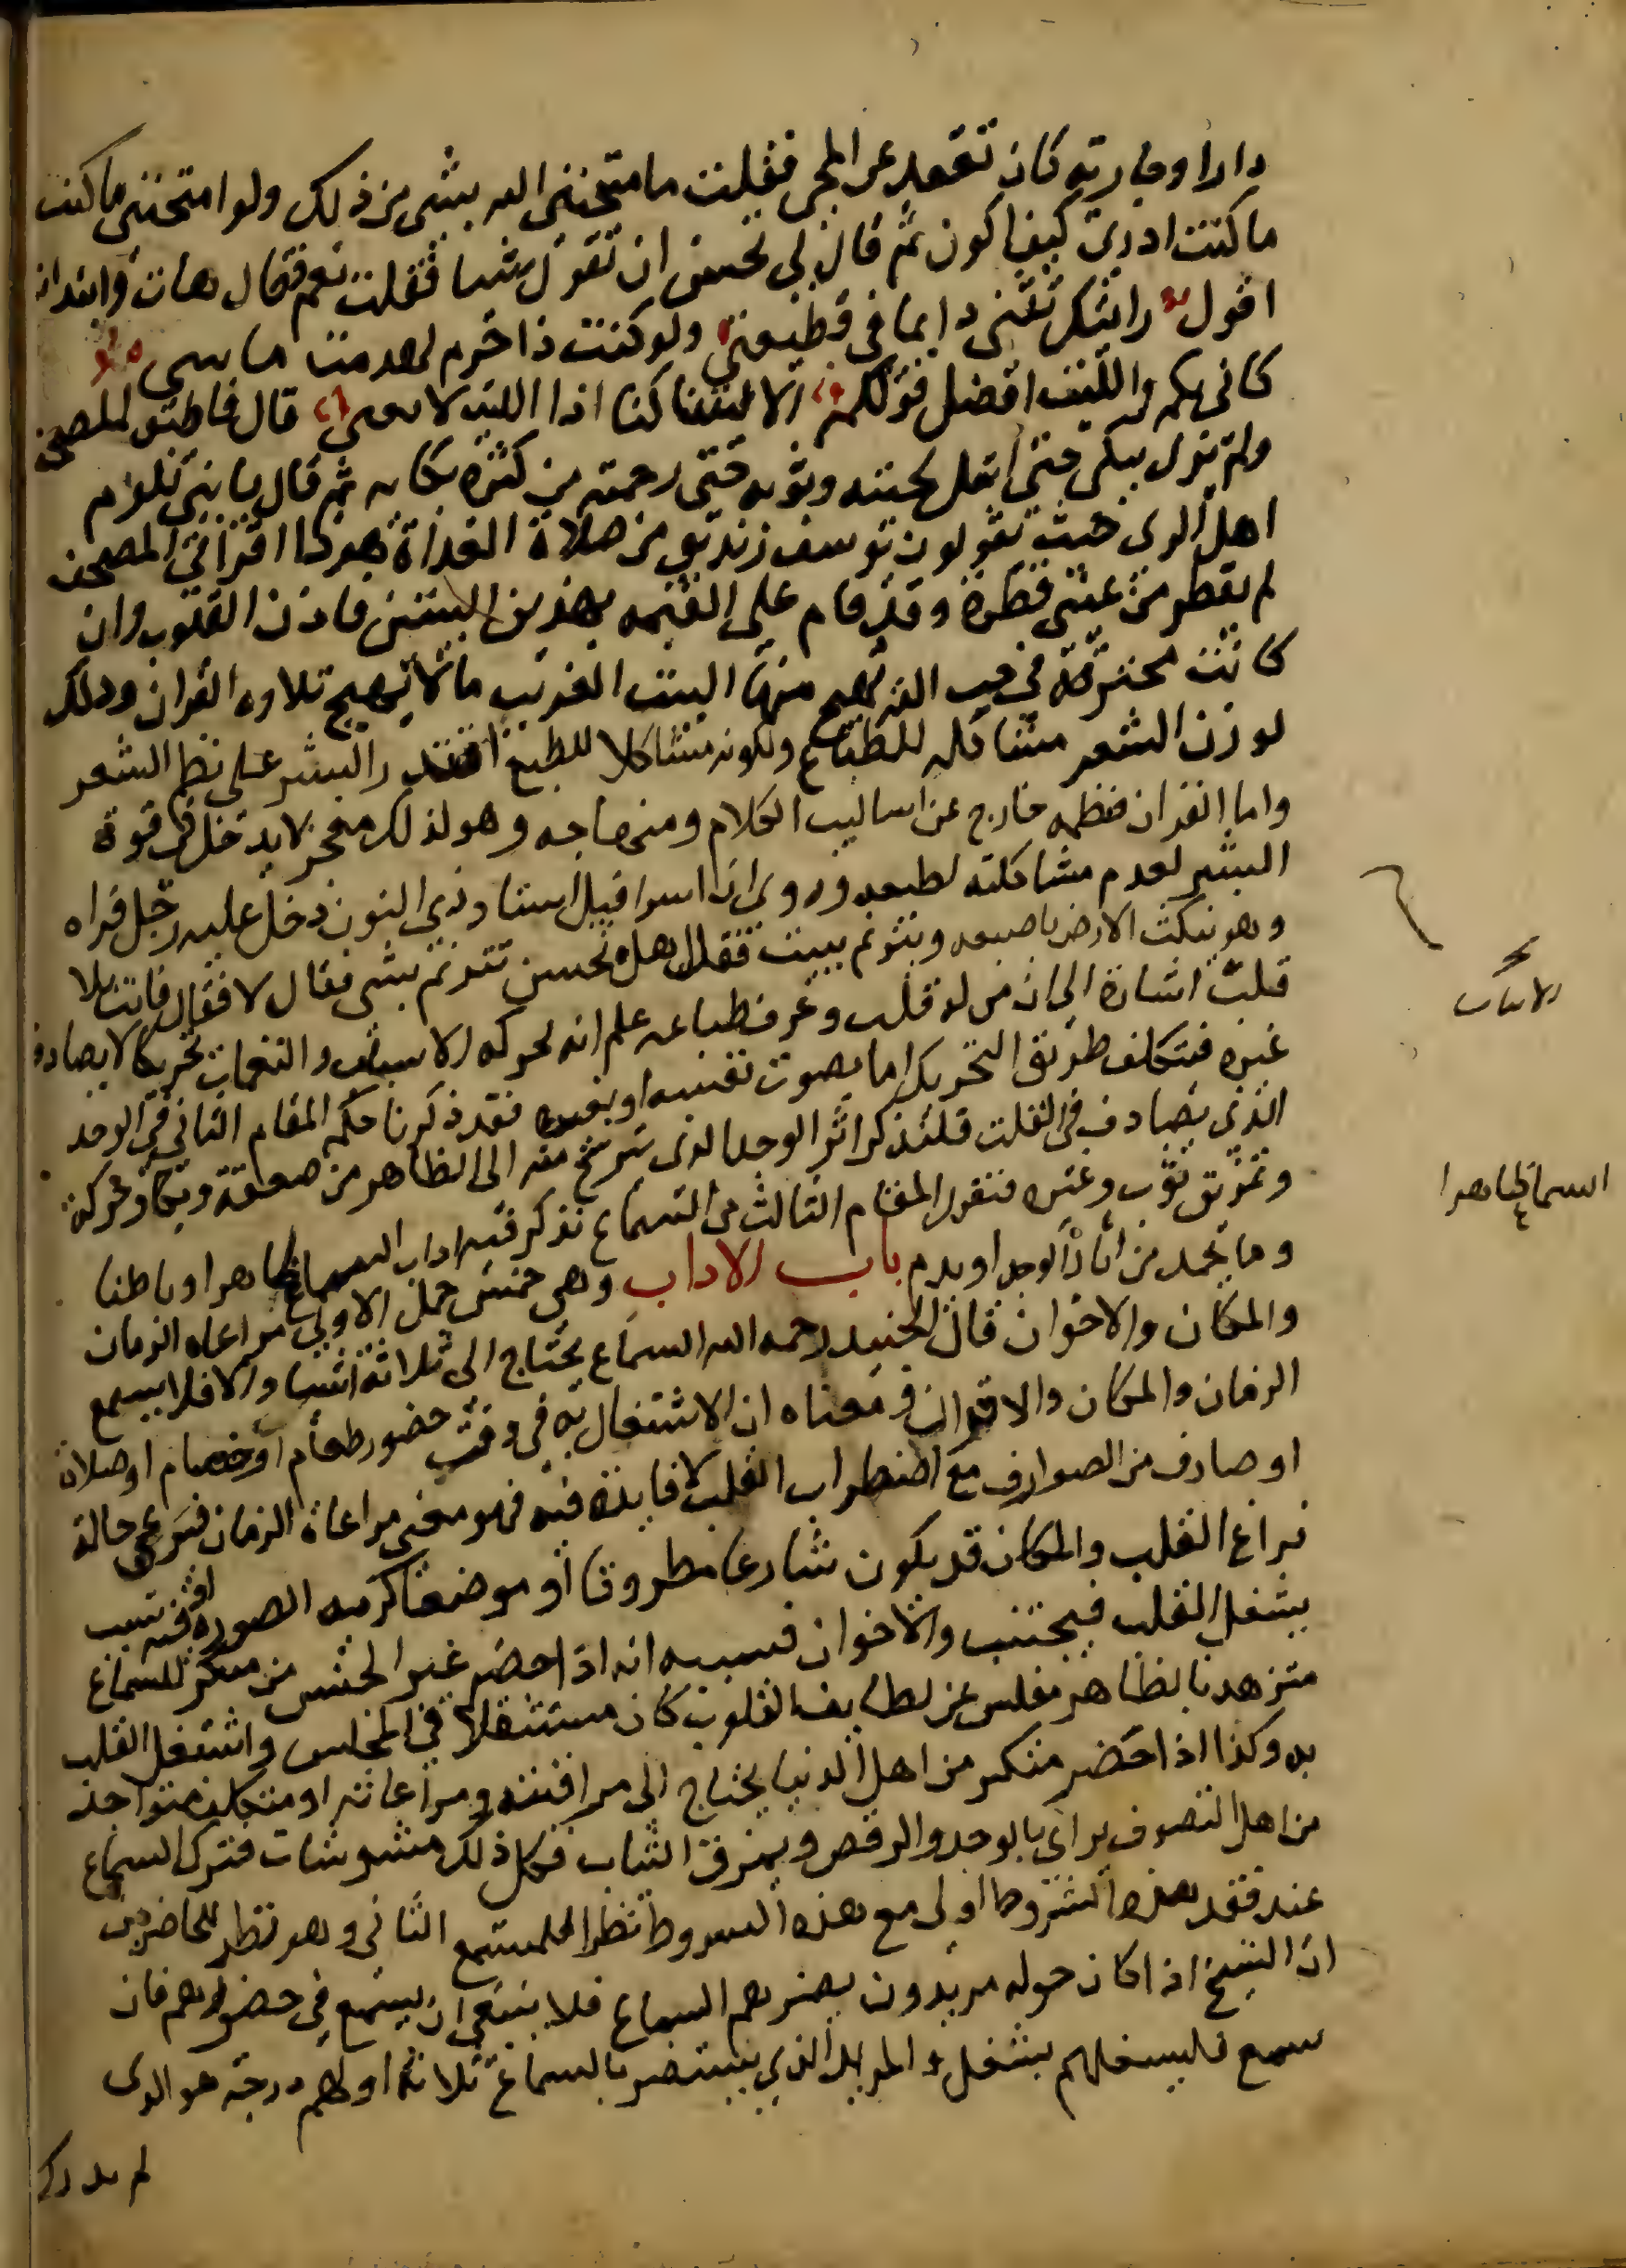 دارا وجارية كان تقعد عن المجى فقلت ما متحننى الله بشى من ذلك ولو امتحننى ما كنت
ما كنت ادرى كيف اكون ثم قال لى تحسن ان تقول شيا فقلت نعم فقال هات وابتدات
اقول رايتك تبنى دايما فى قطيعتى ولو كنت ذا حزم لهدمت ما تبنى
كانى بكم والليت افضل قولكم الا ليتنا كنا اذا الليت لا يغنى قال فاطبق المصحف
ولم يزل يبكى حتى ابتل لحيته وثوبه حتى رحمته من كثرة بكايه ثم قال يا بنى تلوم
اهل الرى حيث يقولون يوسف زنديق من صلاة الغداة هوذا اقرا فى المصحف
لم يقطر من عينى قطرة وقد قام على القيمه بهذين البيتين فاذن القلوب وان
كانت محترقة فى حب الله يهيج منها البيت الغريب ما لا يهيج تلاوه القران وذلك
لوزن الشعر مشاكله للطباع ولكونه مشاكلا للطبع اقتدر البشر على نظم الشعر
واما القران فنظمه خارج عن اساليب الكلام ومنهاجه وهو لذلك معجز لا يدخل فى قوة
البشر لعدم مشاكلته لطبعه وروى ان اسرافيل استاد ذى النون دخل عليه رجل فراه
وهو ينكث الارض باصبعه ويترنم ببيت فقال هل تحسن تترنم بشى فقال لا فقال فانت بلا
قلب اشارة الى ان من له قلب وعرف طباعه علم انه تحركه الابيات والنغمات تحريكا لا يصادف
غيره فيتكلف طريق التحريك اما بصوت نفسه او بغيره فقد ذكرنا حكم المقام الثانى فى الوجد
الذى يصادف فى القلب فلنذكر اثر الوجد الذى يترشح منه الى الظاهر من صعقة وبكا وحركة
وتمزيق ثوب وغيره فنقول المقام الثالث من السماع نذكر فيه اداب السماع ظاهرا وباطنا
وما يحمد من اثار الوجد او يذم باب الاداب وهى خمس جمل الاولى مراعاه الزمان
والمكان والاخوان قال الجنيد رحمه الله السماع يحتاج الى ثلاثة اشيا والا فلا يسمع
الزمان والمكان والاخوان ومعناه ان الاشتغال به فى وقت حضور طعام او خصام او صلاة
او صارف من الصوارف مع اضطراب القلب لا فايدة فيه فهو معنى مراعاة الزمان فيرعى حالة
فراغ القلب والمكان قد يكون شارعا مطروقا او موضعا كريه الصورة او فيه سبب
يشغل القلب فيجتنب والاخوان فسببه انه اذا حضر غير الجنس من منكر للسماع
متزهد بالظاهر مفلس عن لطايف القلوب كان مستثقلا فى المجلس واشتغل القلب
به وكذا اذا حضر متكبر من اهل الدنيا يحتاج الى مراقبته ومراعاته او متكلف متواجد
من اهل التصوف يراى بالوجد والرقص ويمزق الثياب فكل ذلك مشوشات فترك السماع
عند فقد هذه الشروط اولى مع هذه الشروط تنظر للمستمع الثانى وهو نظر للحاضرين
ان الشيخ اذا كان حوله مريدون يضرهم السماع فلا ينبغى ان يسمع فى حضورهم فان
سمع فليشغلهم بشغل والمريد الذى يستضر بالسماع ثلاثة اولهم درجة هو الذى
لم يدرك
الابيات
السماع ظاهرا